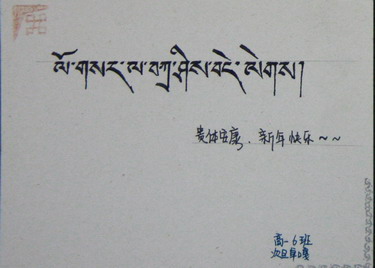 ལོ་གསར་ལ་བཀྲ་ཤིས་བདེ་ལེགས།
贵体安康．新年快乐~~
高一6班
次旦卓嘎